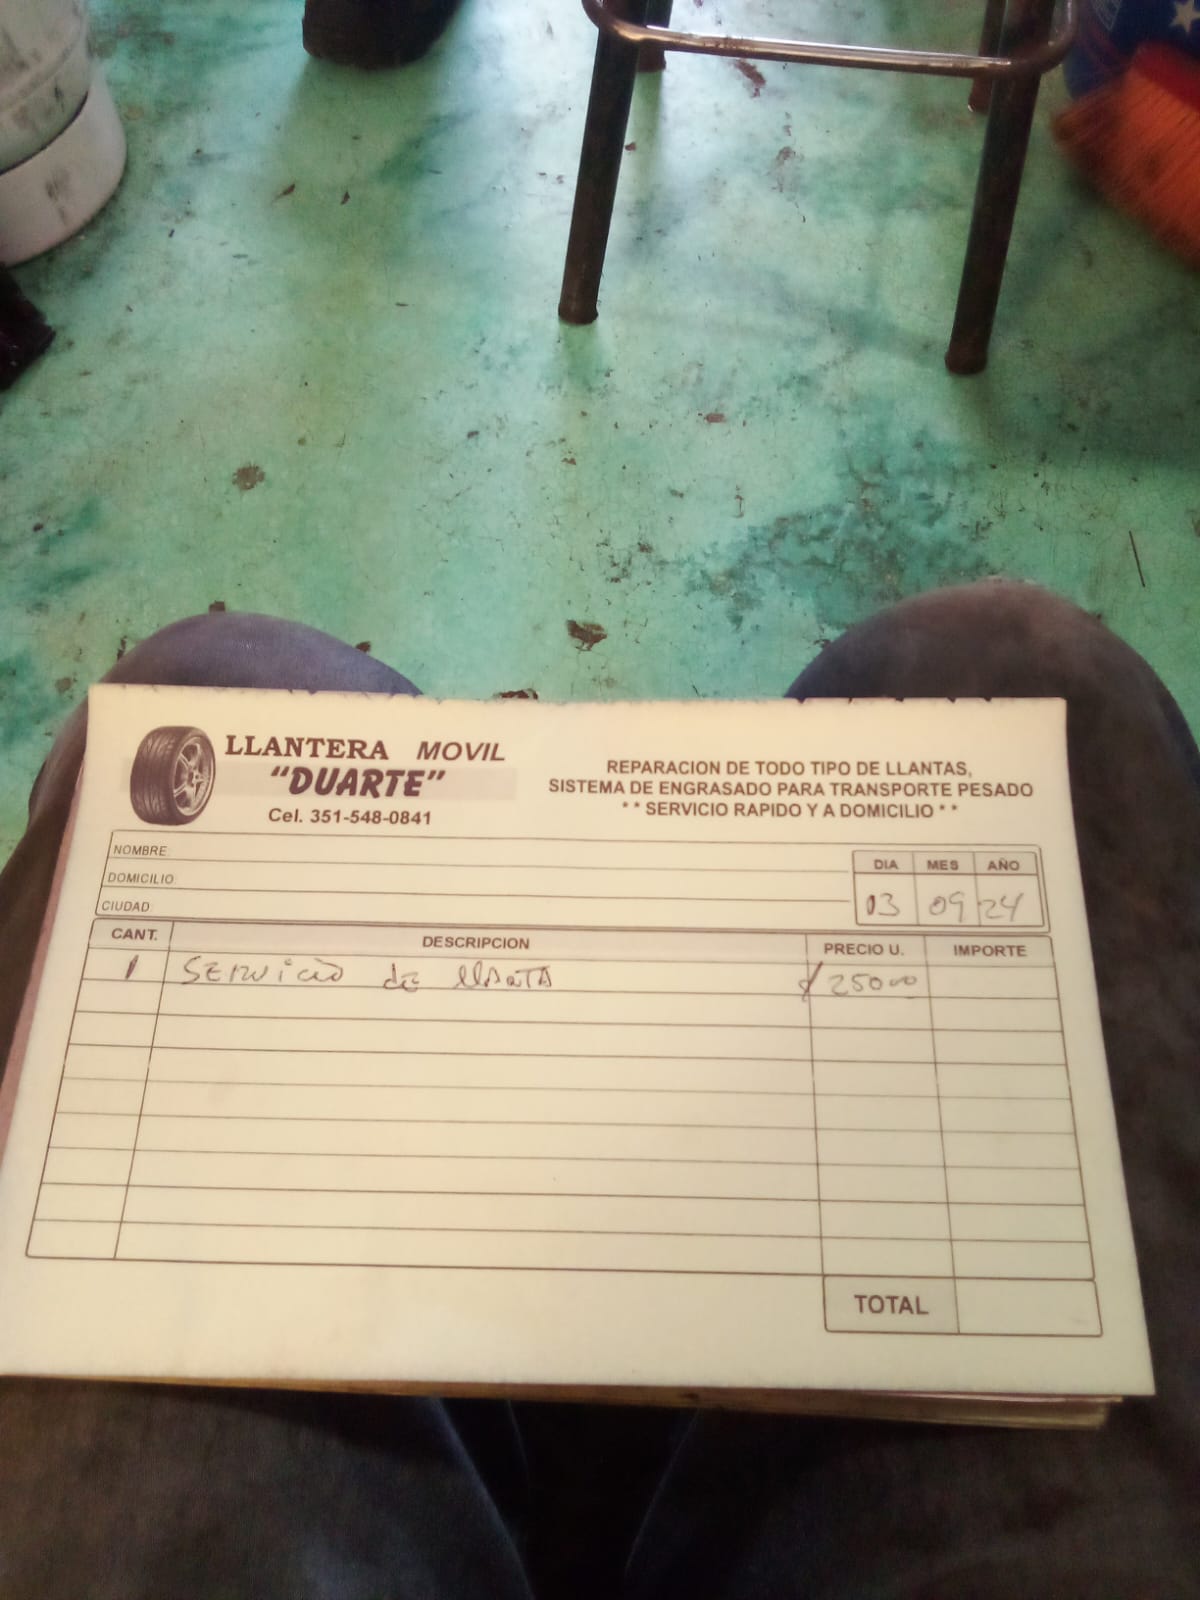 LLANTERA MOVIL
"DUARTE"
Cel. 351-548-0841
REPARACION DE TODO TIPO DE LLANTAS,
SISTEMA DE ENGRASADO PARA TRANSPORTE PESADO
** SERVICIO RAPIDO Y A DOMICILIO **
NOMBRE:
DOMICILIO:
CIUDAD:
DIA MES AÑO
13 09 24
CANT. DESCRIPCION PRECIO U. IMPORTE
1 SERVICIO de llANTA $25000
TOTAL